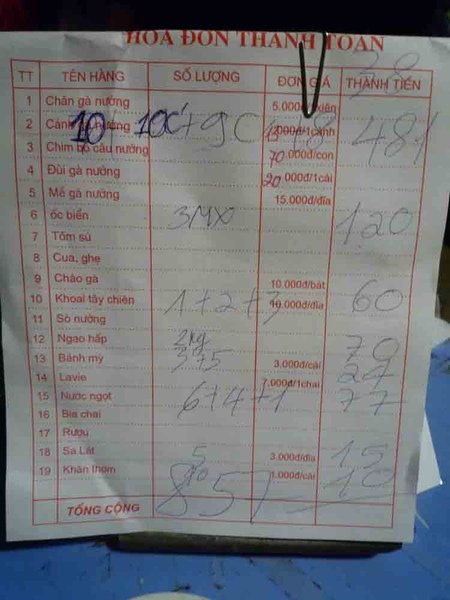 HÓA ĐƠN THANH TOÁN
TT TÊN HÀNG SỐ LƯỢNG ĐƠN GIÁ THÀNH TIỀN
1 Chân gà nướng 5.000đ/
2 Cánh gà nướng 10c + 9c 481
3 Chim bồ câu nướng 70.000đ/con
4 Đùi gà nướng 20.000đ/1cái
5 Mề gà nướng 15.000đ/đĩa
6 ốc biển 120
7 Tôm sú
8 Cua, ghẹ
9 Cháo gà 10.000đ/bát
10 Khoai tây chiên 1+2+3 10.000đ/đĩa 60
11 Sò nướng
12 Ngao hấp 2kg 70
13 Bánh mỳ 3.000đ/cái 27
14 Lavie .000đ/1chai
15 Nước ngọt 6+4+1 77
16 Bia chai
17 Rượu
18 Sa Lát 5 3.000đ/đĩa 15
19 Khăn thơm 10 1.000đ/cái 10
TỔNG CỘNG 857